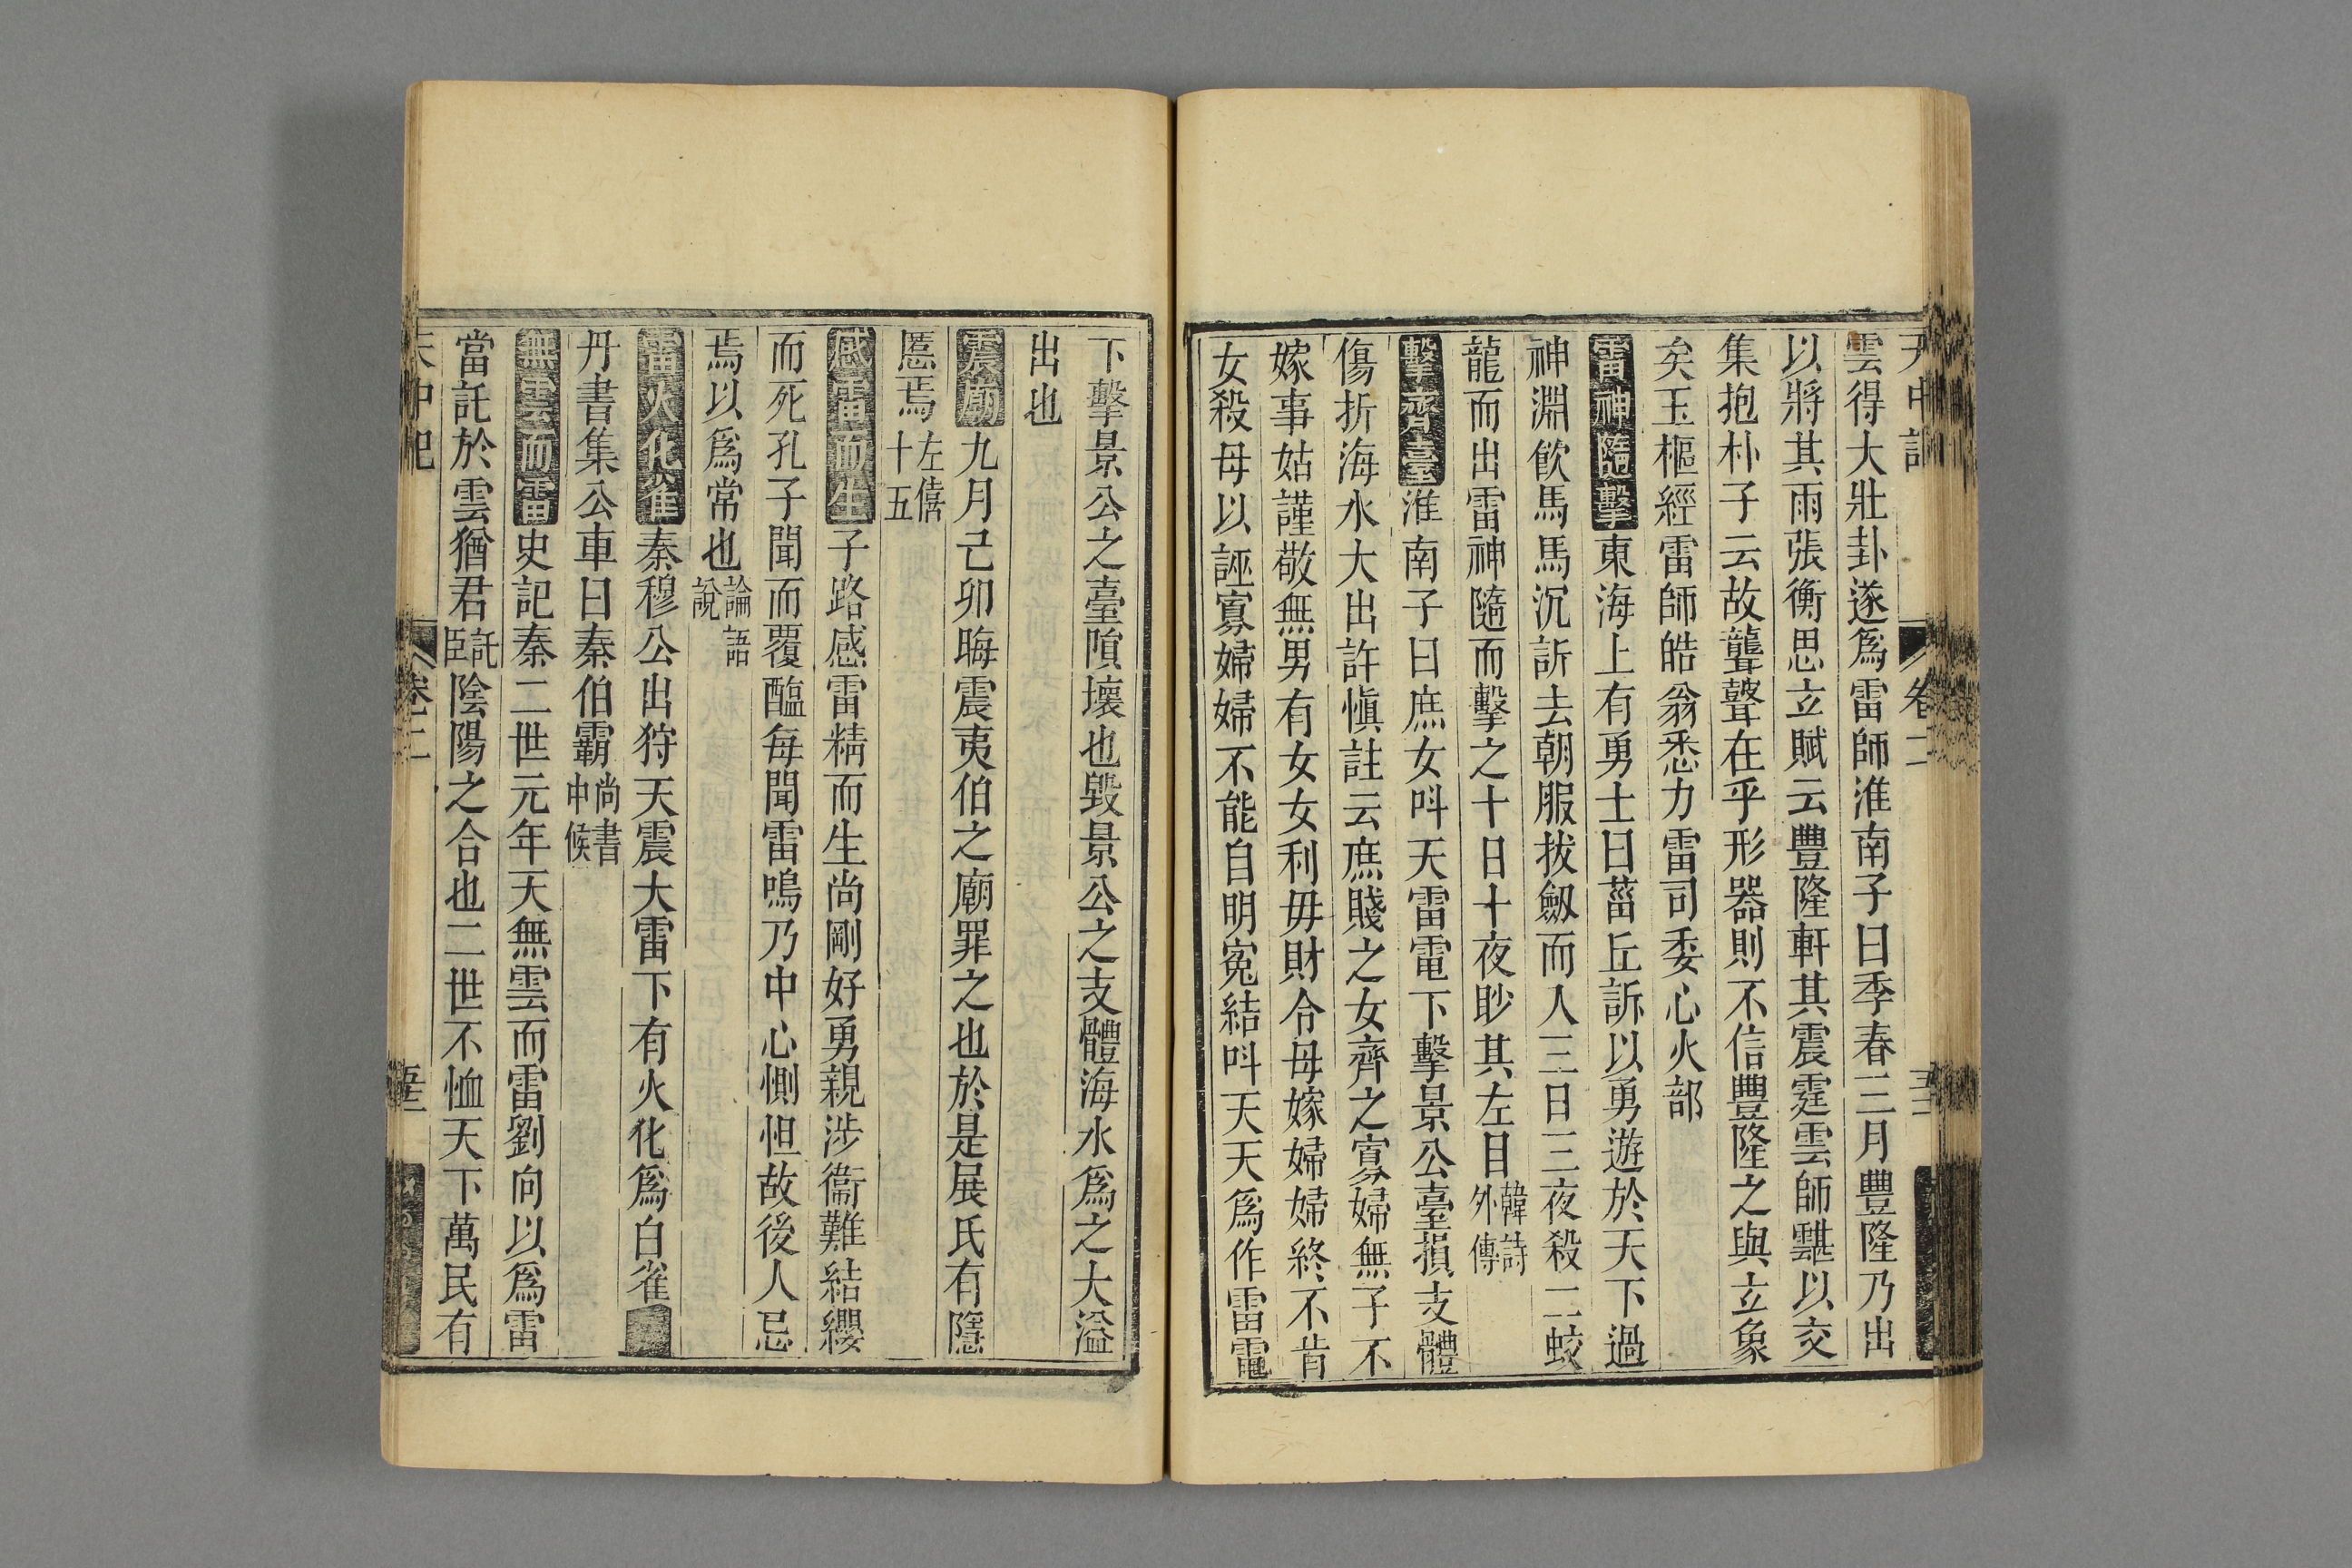 天中記 卷二
雲得大壯卦遂爲雷師淮南子曰季春三月豐隆乃出
以將其雨張衡思立賦云豐隆軒其震霆雲師䨴以交
集抱朴子云故聾瞽在乎形器則不信豐隆之與立象
矣玉樞經雷師皓翁悉力雷司委心火部
雷神隨擊東海上有勇士曰菑丘訴以勇遊於天下過
神淵飲馬馬沉訴去朝服拔劔而入三日三夜殺二蛟
龍而出雷神隨而擊之十日十夜眇其左目韓詩外傳
擊齊臺淮南子曰庶女呌天雷電下擊景公臺損支體
傷折海水大出許慎註云庶賤之女齊之寡婦無子不
嫁事姑謹敬無男有女女利毋財令母嫁婦婦終不肯
女殺母以誣寡婦婦不能自明寃結呌天天爲作雷電
下擊景公之臺隕壞也毀景公之支體海水爲之大溢
出也
震廟九月己卯晦震夷伯之廟罪之也於是展氏有隱
慝焉左僖十五
感雷而生子路感雷精而生尚剛好勇親涉衞難結纓
而死孔子聞而覆醢每聞雷鳴乃中心惻怛故後人忌
焉以爲常也論語說
雷火化雀秦穆公出狩天震大雷下有火化爲白雀
丹書集公車曰秦伯霸尚書中候
無雲而雷史記秦二世元年天無雲而雷劉向以爲雷
當託於雲猶君託臣陰陽之合也二世不恤天下萬民有
天中記 卷二